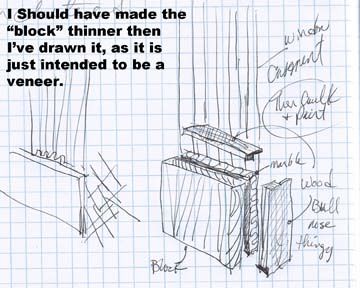 I Should have made the
“block” thinner then
I’ve drawn it, as it is
just intended to be a
veneer.
window
Then Caulk
& Paint
marble
wood
Bull
nose
thingy
Block